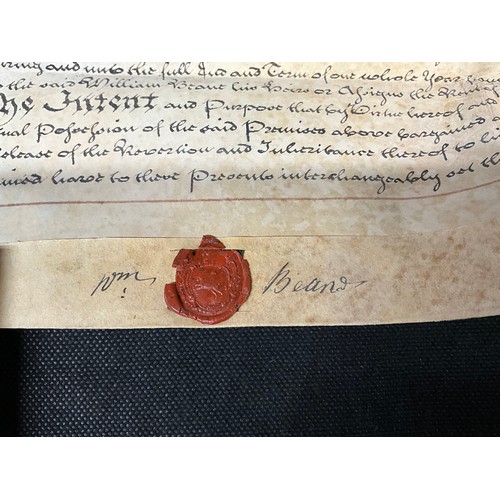 during and unto the full End and Term of one whole Year
to the said William Beane his Heirs or Assigns the Rent of
The Intent and Purpose that by Virtue hereof
Possession of the said Premises above bargained
Release of the Revertion and Inheritance thereof to
have to these Presents interchangeably set
Wm. Beane